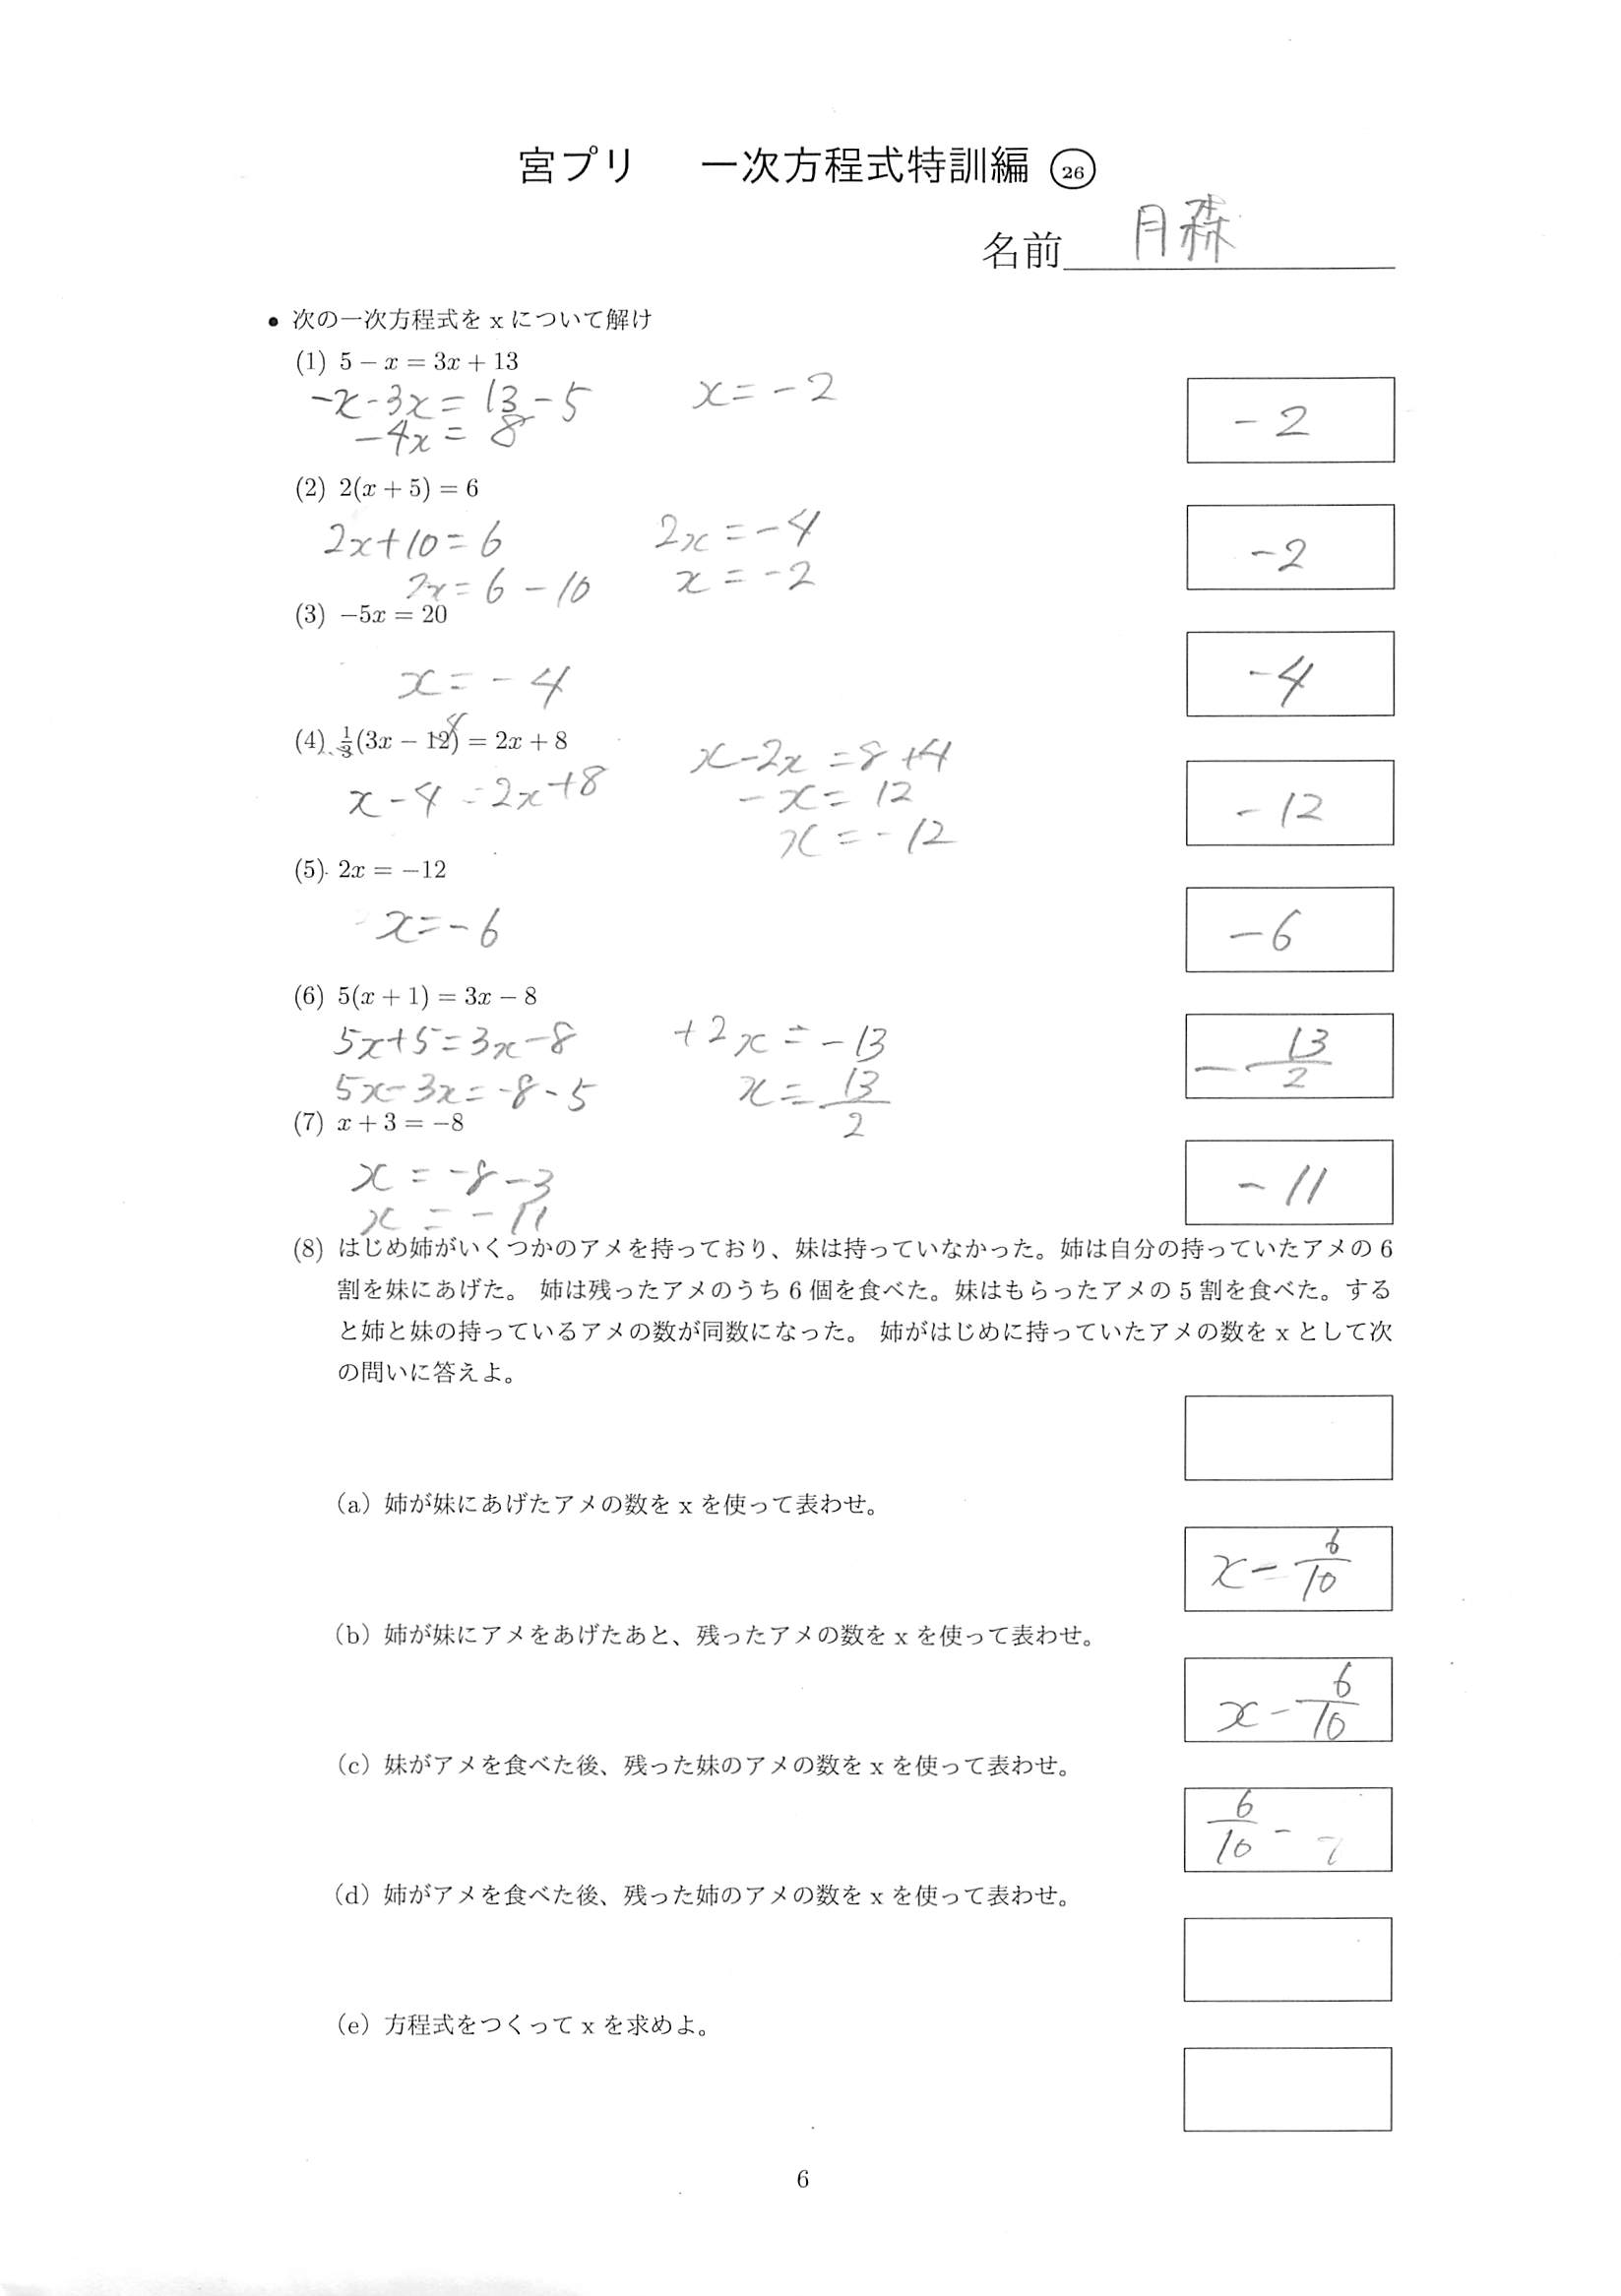 宮プリ 一次方程式特訓編 ㉖
名前 月森
• 次の一次方程式を x について解け
(1) 5 − x = 3x + 13
-x-3x = 13-5 x = -2
-4x = 8
-2
(2) 2(x + 5) = 6
2x+10 = 6 2x = -4
2x = 6 - 10 x = -2
-2
(3) −5x = 20
x = -4
-4
(4) 1/3(3x − 12) = 2x + 8
x - 4 = 2x+8 x-2x = 8+4
-x = 12
x = -12
-12
(5) 2x = −12
x = -6
-6
(6) 5(x + 1) = 3x − 8
5x+5 = 3x-8 +2x = -13
5x-3x = -8-5 x = 13/2
- 13/2
(7) x + 3 = −8
x = -8-3
x = -11
-11
(8) はじめ姉がいくつかのアメを持っており、妹は持っていなかった。姉は自分の持っていたアメの 6
割を妹にあげた。 姉は残ったアメのうち 6 個を食べた。妹はもらったアメの 5 割を食べた。する
と姉と妹の持っているアメの数が同数になった。 姉がはじめに持っていたアメの数を x として次
の問いに答えよ。
(a) 姉が妹にあげたアメの数を x を使って表わせ。
x - 6/10
(b) 姉が妹にアメをあげたあと、残ったアメの数を x を使って表わせ。
x - 6/10
(c) 妹がアメを食べた後、残った妹のアメの数を x を使って表わせ。
6/10 -
(d) 姉がアメを食べた後、残った姉のアメの数を x を使って表わせ。
(e) 方程式をつくって x を求めよ。
6